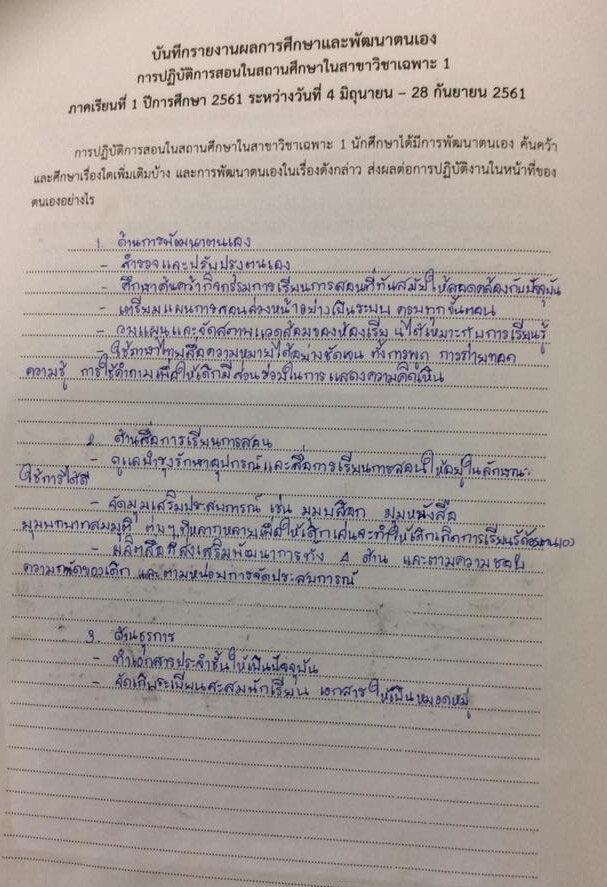 บันทึกรายงานผลการศึกษาและพัฒนาตนเอง
การปฏิบัติการสอนในสถานศึกษาในสาขาวิชาเฉพาะ 1
ภาคเรียนที่ 1 ปีการศึกษา 2561 ระหว่างวันที่ 4 มิถุนายน – 28 กันยายน 2561
การปฏิบัติการสอนในสถานศึกษาในสาขาวิชาเฉพาะ 1 นักศึกษาได้มีการพัฒนาตนเอง ค้นคว้า
และศึกษาเรื่องใดเพิ่มเติมบ้าง และการพัฒนาตนเองในเรื่องดังกล่าว ส่งผลต่อการปฏิบัติงานในหน้าที่ของ
ตนเองอย่างไร
1. ด้านการพัฒนาตนเอง
- สำรวจและปรับปรุงตนเอง
- ศึกษาค้นคว้ากิจกรรมการเรียนการสอนที่ทันสมัยให้สอดคล้องกับปัจจุบัน
- เตรียมแผนการสอนล่วงหน้าอย่างเป็นระบบ ครบทุกขั้นตอน
- วางแผนและจัดสภาพแวดล้อมของห้องเรียนได้เหมาะกับการเรียนรู้
- ใช้ภาษาไทยสื่อความหมายได้อย่างชัดเจน ทั้งการพูด การถ่ายทอด
ความรู้ การใช้คำถามเพื่อให้เด็กมีส่วนร่วมในการแสดงความคิดเห็น
2. ด้านสื่อการเรียนการสอน
- ดูแลบำรุงรักษาอุปกรณ์และสื่อการเรียนการสอนให้อยู่ในลักษณะ
ใช้การได้ดี
- จัดมุมเสริมประสบการณ์ เช่น มุมบล็อก มุมหนังสือ
มุมบทบาทสมมุติ ต่างๆที่หลากหลายเพื่อให้เด็กเล่นจะทำให้เด็กเกิดการเรียนรู้ด้วยตนเอง
- ผลิตสื่อที่ส่งเสริมพัฒนาการทั้ง 4 ด้าน และตามความชอบ
ความถนัดของเด็ก และตามหน่วยการจัดประสบการณ์
3. ด้านธุรการ
- ทำเอกสารประจำชั้นให้เป็นปัจจุบัน
- จัดเก็บระเบียนสะสมนักเรียน เอกสารให้เป็นหมวดหมู่